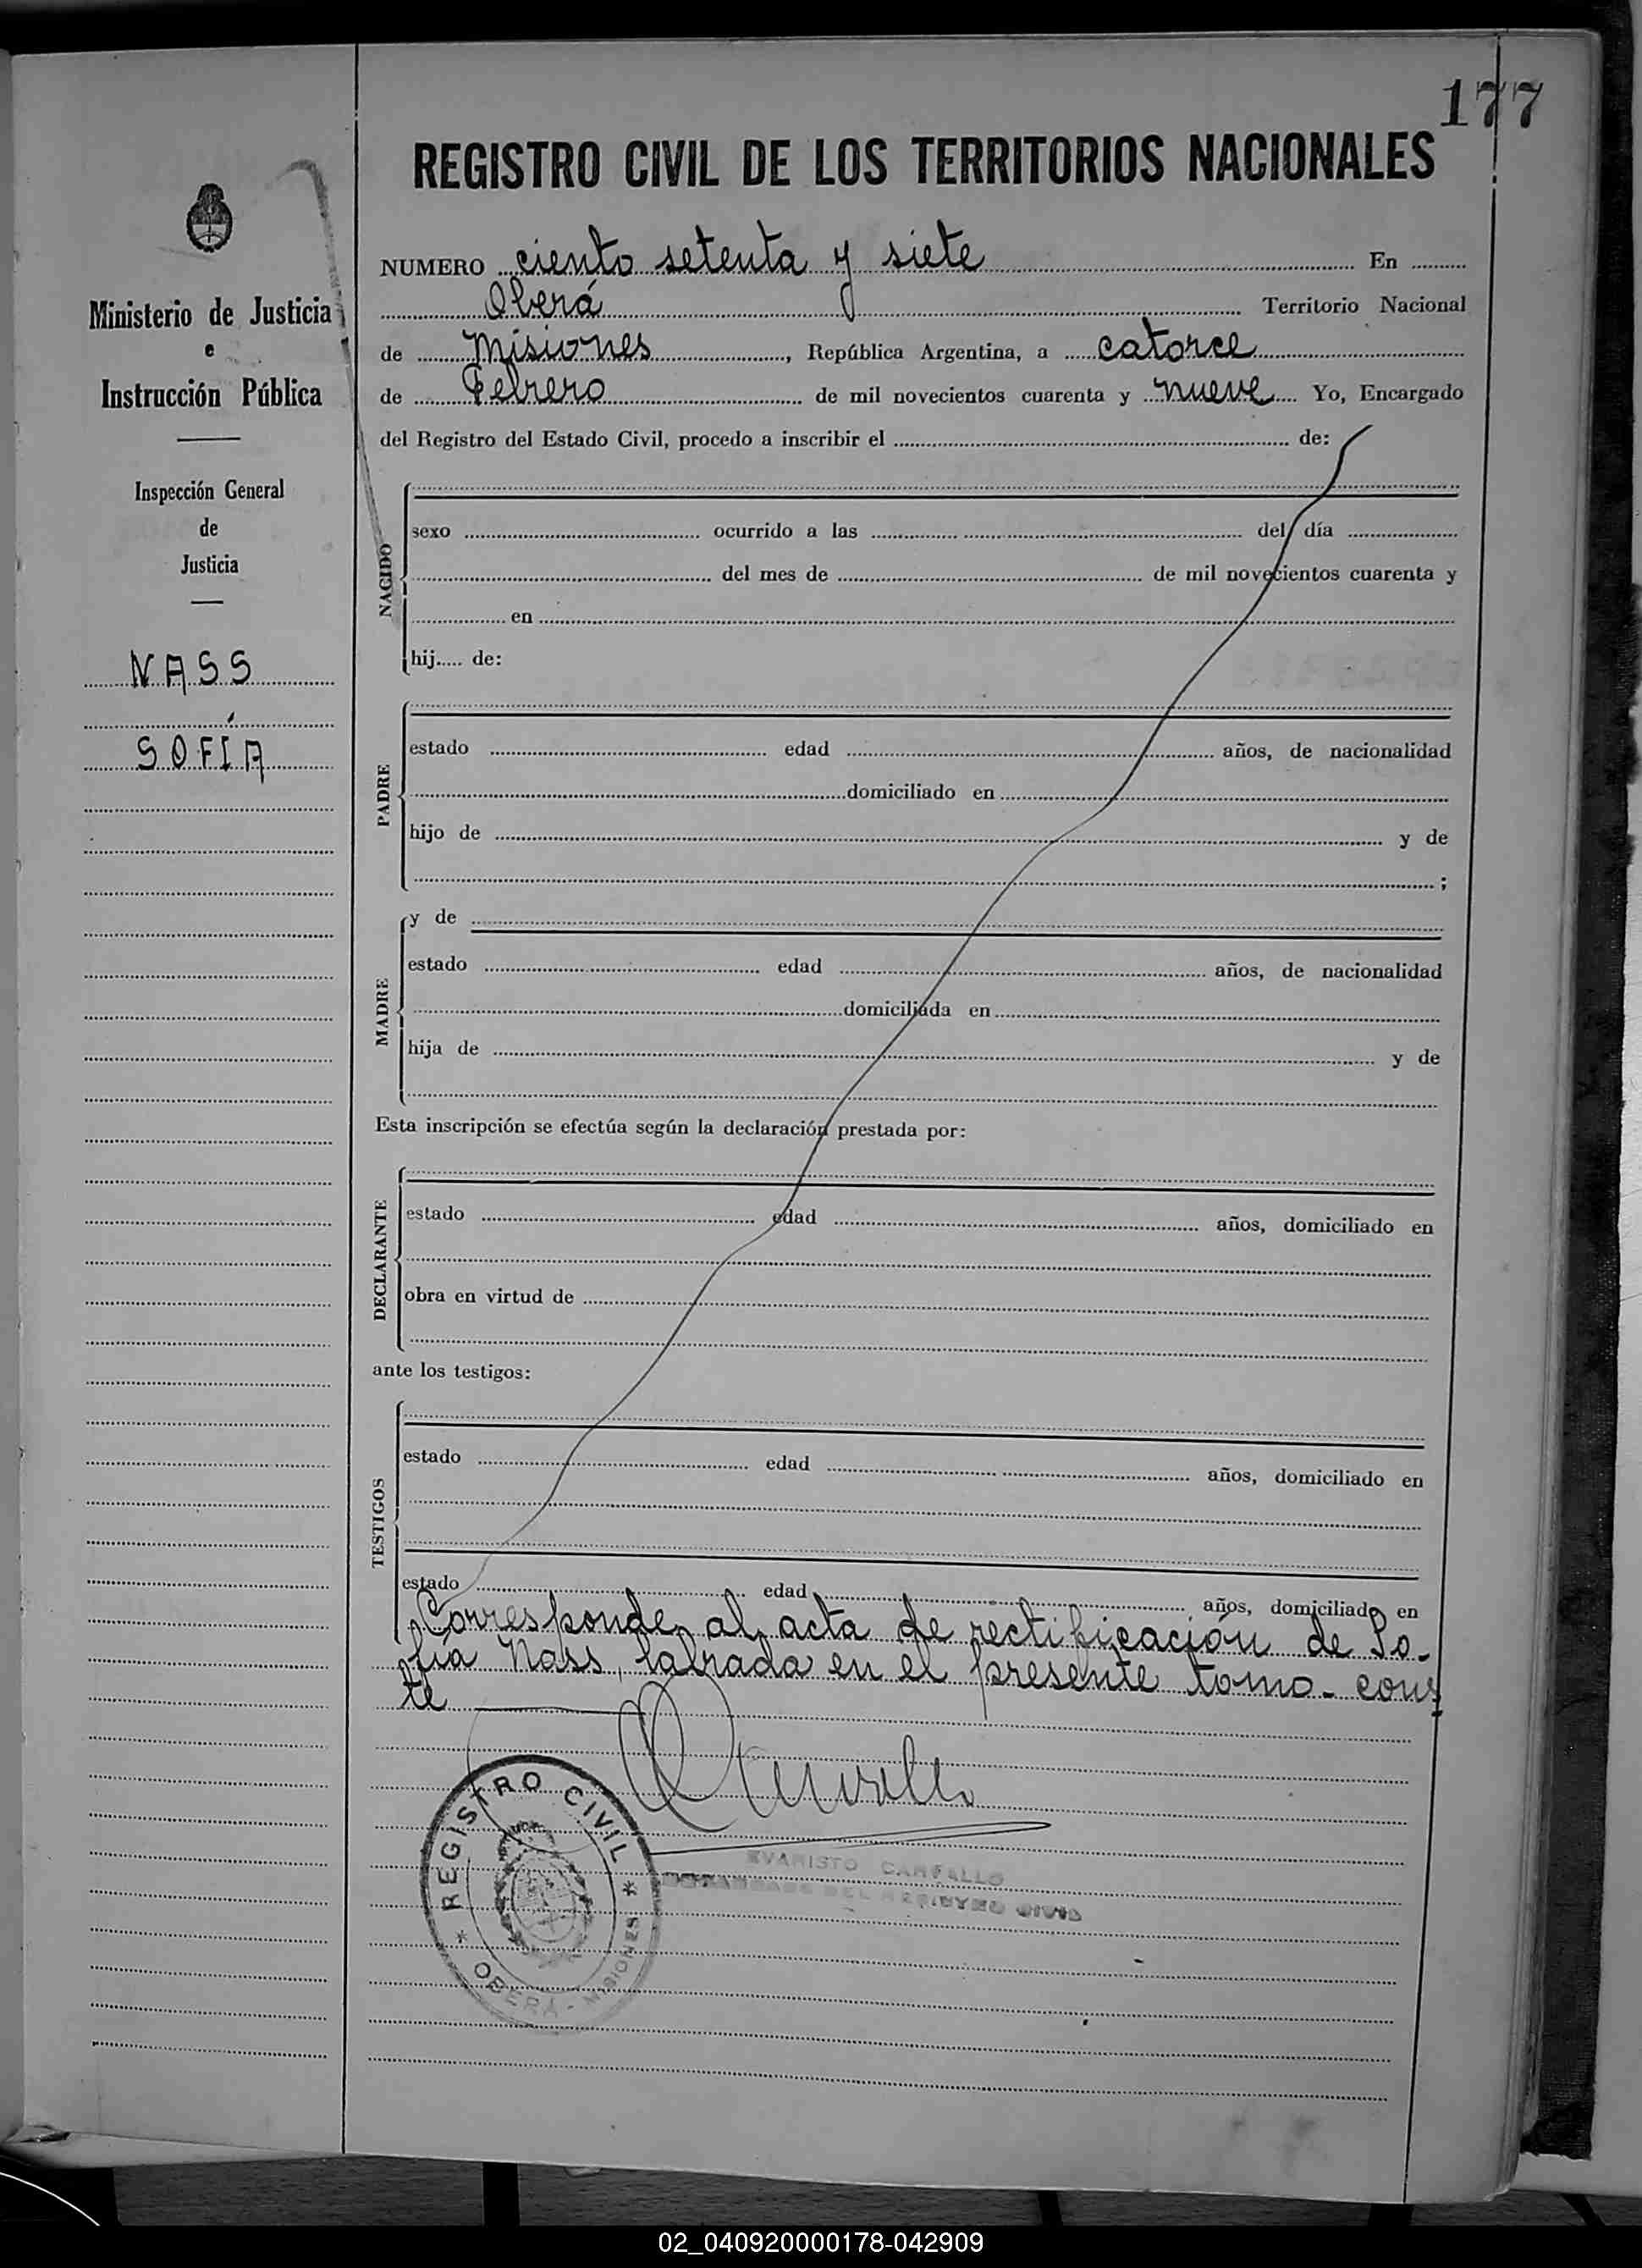 177
REGISTRO CIVIL DE LOS TERRITORIOS NACIONALES
Ministerio de Justicia
e
Instrucción Pública
Inspección General
de
Justicia
NASS
SOFÍA
NUMERO ciento setenta y siete En
Oberá Territorio Nacional
de Misiones, República Argentina, a catorce
de Febrero de mil novecientos cuarenta y nueve Yo, Encargado
del Registro del Estado Civil, procedo a inscribir el de:
NACIDO
sexo ocurrido a las del día
del mes de de mil novecientos cuarenta y
en
hij..... de:
PADRE
estado edad años, de nacionalidad
domiciliado en
hijo de y de
;
MADRE
y de
estado edad años, de nacionalidad
domiciliada en
hija de y de
Esta inscripción se efectúa según la declaración prestada por:
DECLARANTE
estado edad años, domiciliado en
obra en virtud de
ante los testigos:
TESTIGOS
estado edad años, domiciliado en
estado edad años, domiciliado en
Corresponde al acta de rectificación de So-
fía Nass, labrada en el presente tomo - cons
te
REGISTRO CIVIL
OBERÁ - MISIONES
EVARISTO CARFALLO
DEL REGISTRO CIVIL
02_040920000178-042909